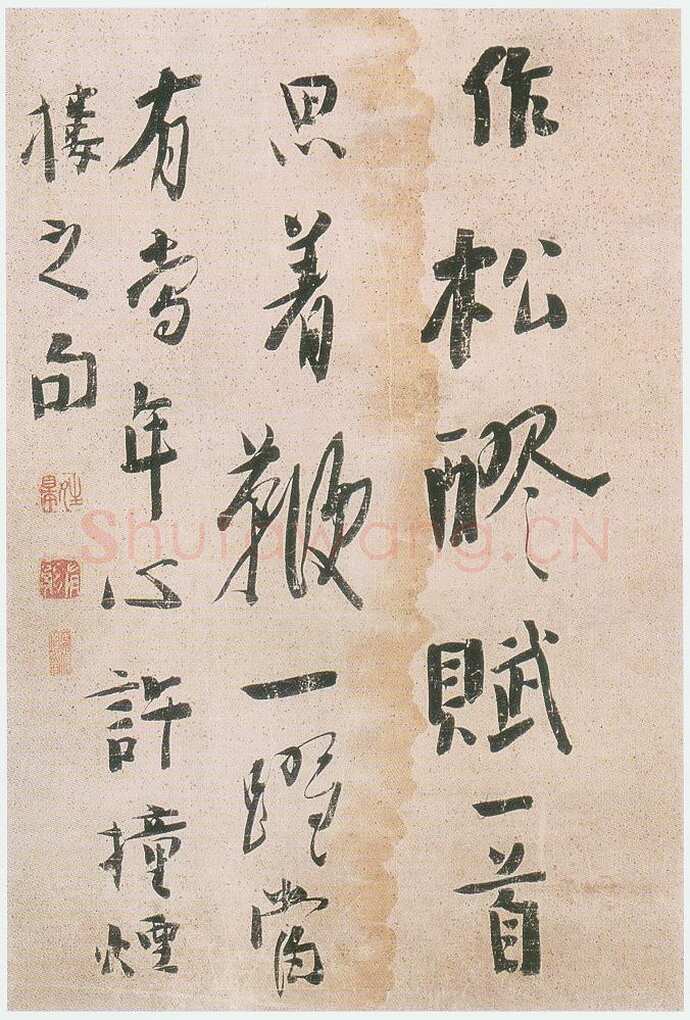 作松醪賦一首
思着鞭一躍嘗
有當年心許撞煙
樓之句
Shufawang.CN